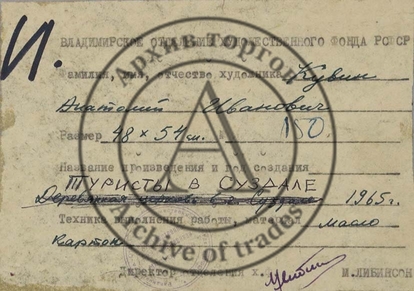 И.
ВЛАДИМИРСКОЕ ОТДЕЛЕНИЕ ХУДОЖЕСТВЕННОГО ФОНДА РСФСР
Фамилия, имя, отчество художника Кувин
Анатолий Иванович
Размер 48 х 54 см. № 150
Название произведения и год создания
ТУРИСТЫ В СУЗДАЛЕ
Деревянная церковь 1965 г.
Техника выполнения работы, материал масло
картон
Директор отделения х. М. ЛИБИНСОН
Архив торгов
A
Archive of trades